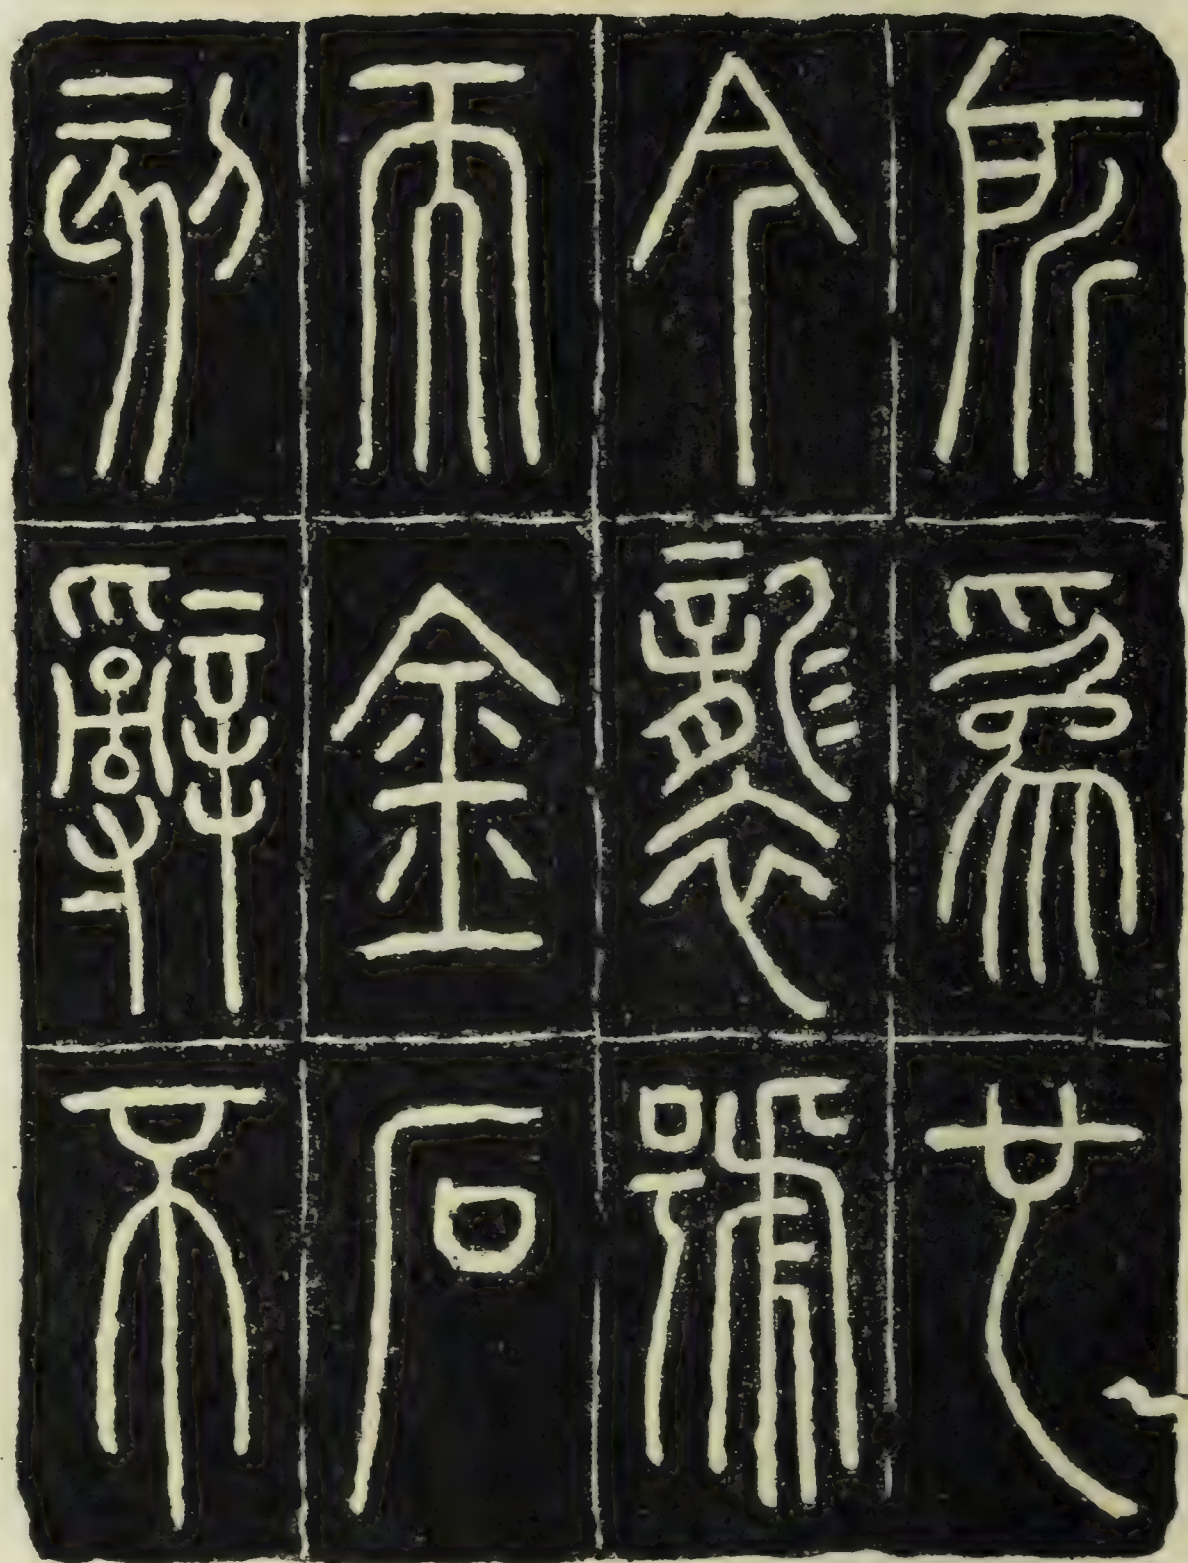 所為也
今襲號
而金石
刻辭不